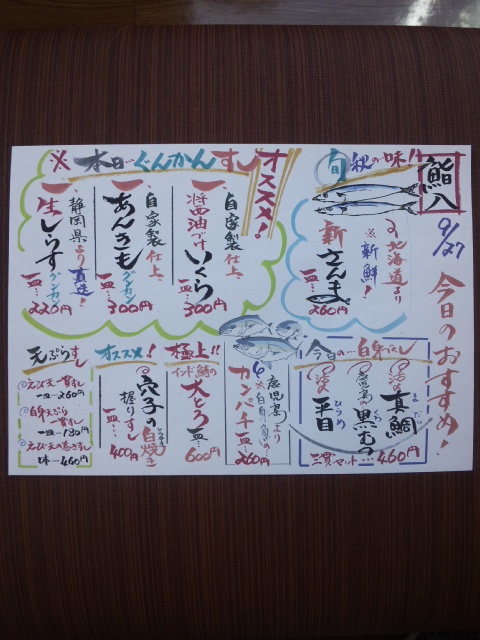 鮨八
9/27
今日のおすすめ!
旬 秋の味!!
北海道より
※新鮮!
新さんま
一皿…260円
オススメ!
※本日ぐんかんすし
自家製仕上
醤油づけいくら
一皿…300円
自家製仕上
あんきもグンカン
一皿…300円
静岡県より直送!
生しらすグンカン
一皿…220円
今日の…白身づくし
真鯛
まだい
黒むつ
平目
ひらめ
三貫セット…460円
鹿児島より
※白身の
カンパチ
一皿…260円
極上!!
インド鮪の
大とろ
一皿…600円
オススメ!
穴子の白焼き
握りすし
400円
天ぷらすし
えび天一貫すし
一皿…260円
白身天ぷら
一貫すし
一皿…130円
えび天の巻きすし
1本…460円